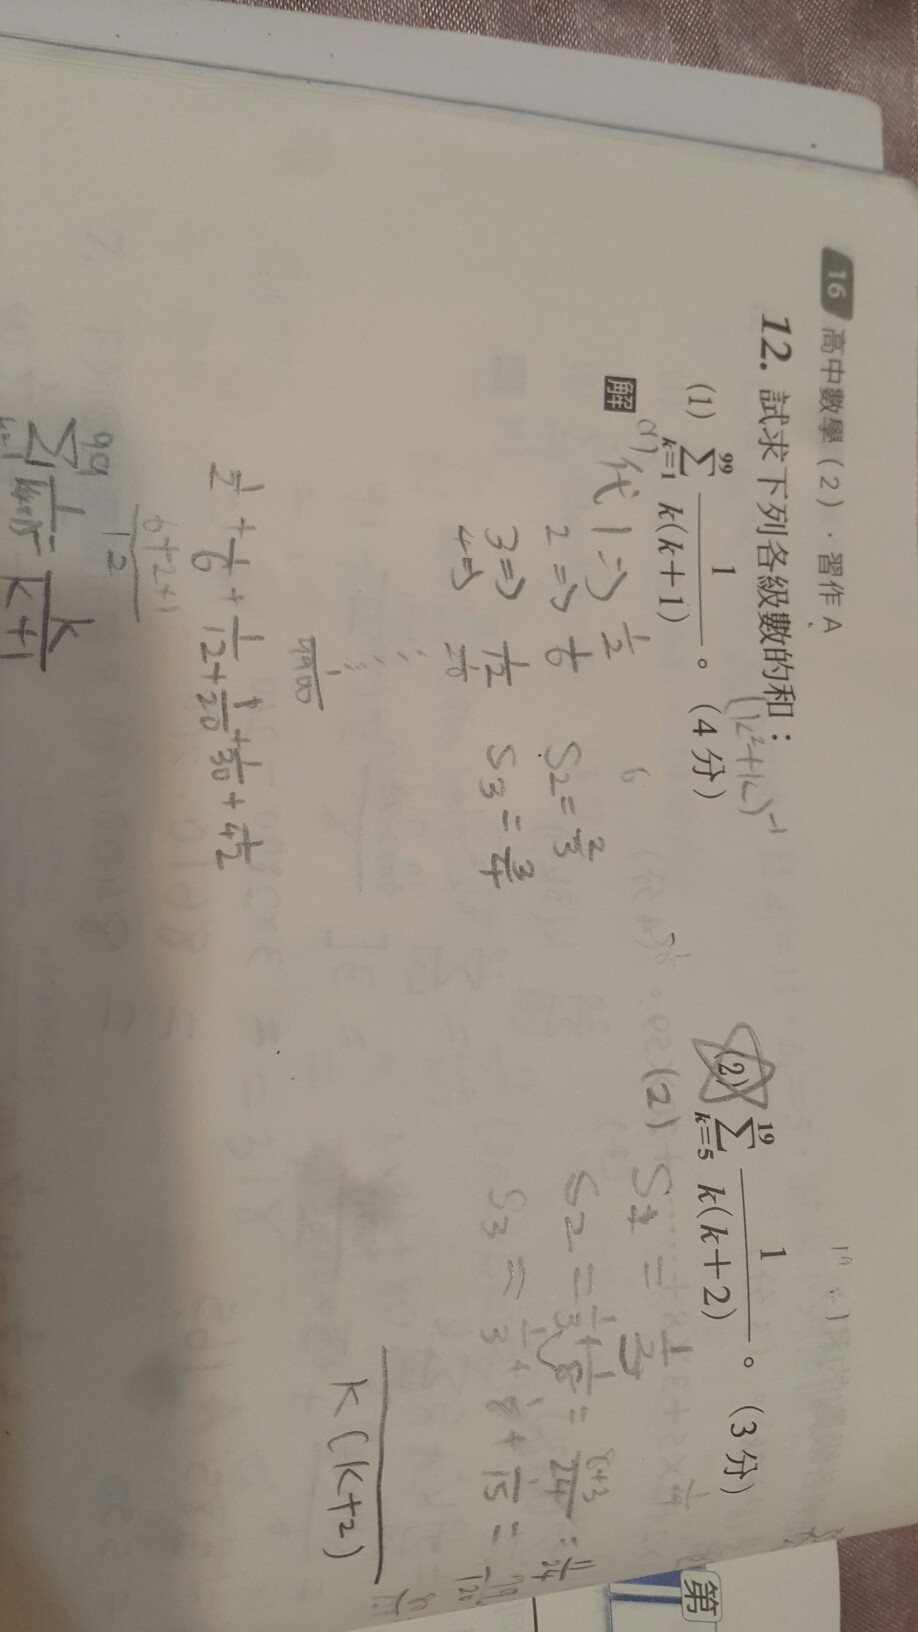 16 高中數學（2）．習作 A
12. 試求下列各級數的和：
(k²+k)⁻¹
(1) \sum_{k=1}^{99} \frac{1}{k(k+1)}。（4分）
(2) \sum_{k=5}^{19} \frac{1}{k(k+2)}。（3分）
解
(1) 代 1 ⇒ 1/2
2 ⇒ 1/6 S2 = 2/3
3 ⇒ 1/12 S3 = 3/4
4 ⇒ 1/20
1/9900
1/2 + 1/6 + 1/12 + 1/20 + 1/30 + 1/42
6+2+1
12
99 Σ k=1
k/k+1
(2) S1 = 1/3
S2 = 1/3 + 1/8 = 8+3/24 = 11/24
S3 = 1/3 + 1/8 + 1/15 =
K(K+2)
第